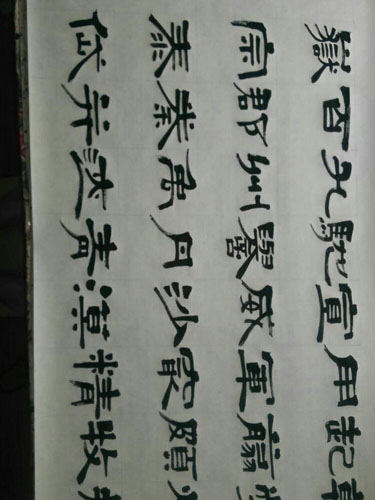 起翦頗牧
用軍冣精
宣威沙漠
馳譽丹青
九州禹迹
百郡秦并
嶽宗泰岱